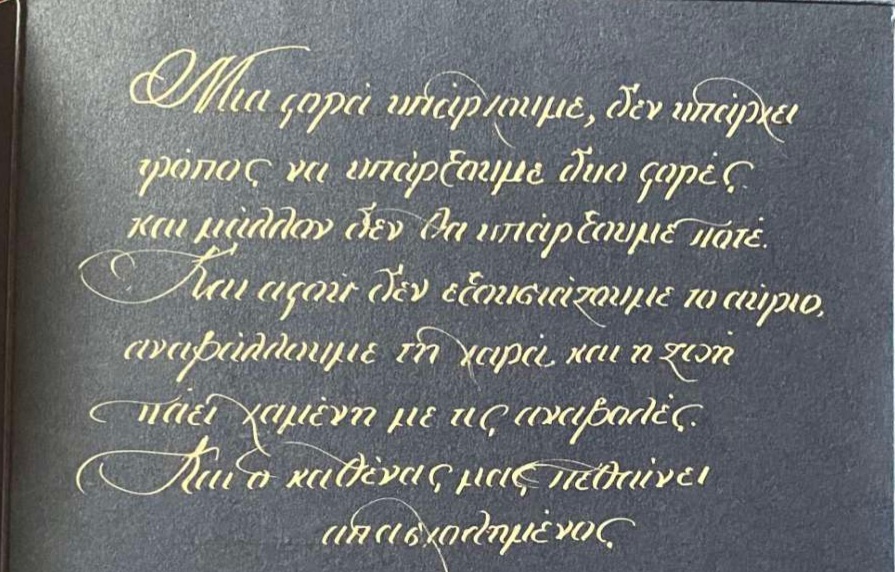 Μια φορά υπάρχουμε, δεν υπάρχει
τρόπος να υπάρξουμε δυο φορές
και μάλλον δεν θα υπάρξουμε ποτέ.
Και αφού δεν εξουσιάζουμε το αύριο,
αναβάλλουμε τη χαρά και η ζωή
πάει χαμένη με τις αναβολές.
Και ο καθένας μας πεθαίνει
απασχολημένος